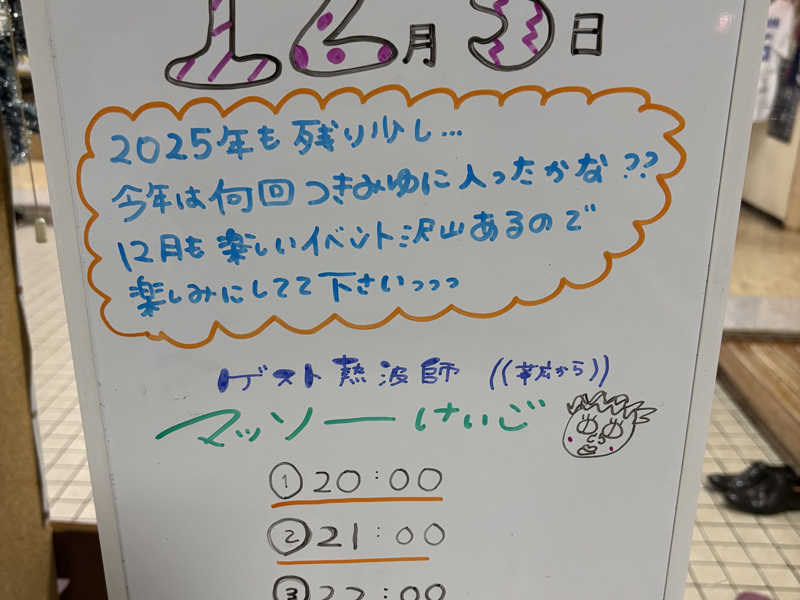 12月3日
2025年も残り少し...
今年は何回つきみゆに入ったかな??
12月も楽しいイベント沢山あるので
楽しみにしてて下さいっっっ
ゲスト熱波師
マッソーけいご
① 20:00
② 21:00
③ 22:00